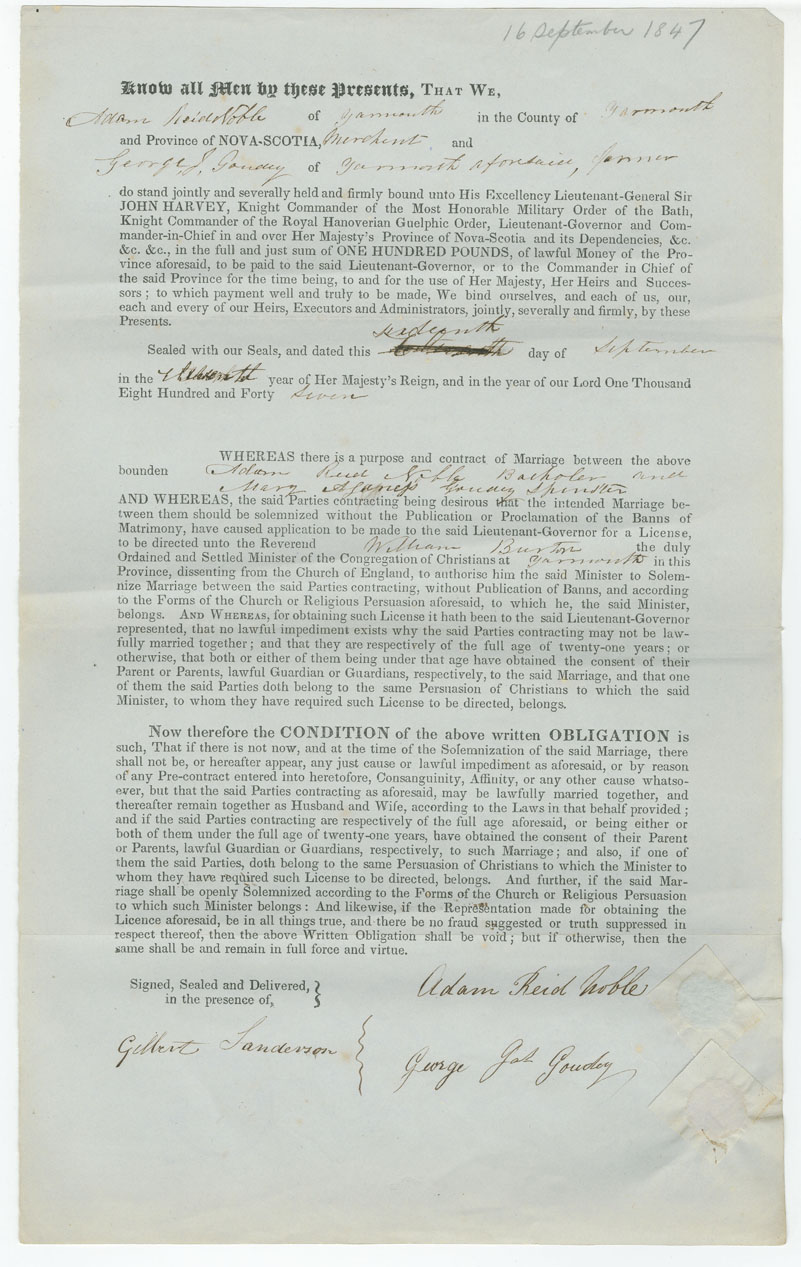 16 September 1847
Know all Men by these Presents, THAT WE,
Adam Reid Noble of Yarmouth in the County of Yarmouth
and Province of NOVA-SCOTIA, Merchant and
George J. Goudey of Yarmouth aforesaid, farmer
do stand jointly and severally held and firmly bound unto His Excellency Lieutenant-General Sir
JOHN HARVEY, Knight Commander of the Most Honorable Military Order of the Bath,
Knight Commander of the Royal Hanoverian Guelphic Order, Lieutenant-Governor and Com-
mander-in-Chief in and over Her Majesty's Province of Nova-Scotia and its Dependencies, &c.
&c. &c., in the full and just sum of ONE HUNDRED POUNDS, of lawful Money of the Pro-
vince aforesaid, to be paid to the said Lieutenant-Governor, or to the Commander in Chief of
the said Province for the time being, to and for the use of Her Majesty, Her Heirs and Succes-
sors; to which payment well and truly to be made, We bind ourselves, and each of us, our,
each and every of our Heirs, Executors and Administrators, jointly, severally and firmly, by these
Presents.
sixteenth
Sealed with our Seals, and dated this day of September
in the year of Her Majesty's Reign, and in the year of our Lord One Thousand
Eight Hundred and Forty Seven
WHEREAS there is a purpose and contract of Marriage between the above
bounden Adam Reid Noble Bachelor and
Mary Agness Goudey Spinster
AND WHEREAS, the said Parties contracting being desirous that the intended Marriage be-
tween them should be solemnized without the Publication or Proclamation of the Banns of
Matrimony, have caused application to be made to the said Lieutenant-Governor for a License,
to be directed unto the Reverend William Burton the duly
Ordained and Settled Minister of the Congregation of Christians at Yarmouth in this
Province, dissenting from the Church of England, to authorise him the said Minister to Solem-
nize Marriage between the said Parties contracting, without Publication of Banns, and according
to the Forms of the Church or Religious Persuasion aforesaid, to which he, the said Minister,
belongs. AND WHEREAS, for obtaining such License it hath been to the said Lieutenant-Governor
represented, that no lawful impediment exists why the said Parties contracting may not be law-
fully married together; and that they are respectively of the full age of twenty-one years; or
otherwise, that both or either of them being under that age have obtained the consent of their
Parent or Parents, lawful Guardian or Guardians, respectively, to the said Marriage, and that one
of them the said Parties doth belong to the same Persuasion of Christians to which the said
Minister, to whom they have required such License to be directed, belongs.
Now therefore the CONDITION of the above written OBLIGATION is
such, That if there is not now, and at the time of the Solemnization of the said Marriage, there
shall not be, or hereafter appear, any just cause or lawful impediment as aforesaid, or by reason
of any Pre-contract entered into heretofore, Consanguinity, Affinity, or any other cause whatso-
ever, but that the said Parties contracting as aforesaid, may be lawfully married together, and
thereafter remain together as Husband and Wife, according to the Laws in that behalf provided;
and if the said Parties contracting are respectively of the full age aforesaid, or being either or
both of them under the full age of twenty-one years, have obtained the consent of their Parent
or Parents, lawful Guardian or Guardians, respectively, to such Marriage; and also, if one of
them the said Parties, doth belong to the same Persuasion of Christians to which the Minister to
whom they have required such License to be directed, belongs. And further, if the said Mar-
riage shall be openly Solemnized according to the Forms of the Church or Religious Persuasion
to which such Minister belongs: And likewise, if the Representation made for obtaining the
Licence aforesaid, be in all things true, and there be no fraud suggested or truth suppressed in
respect thereof, then the above Written Obligation shall be void; but if otherwise, then the
same shall be and remain in full force and virtue.
Signed, Sealed and Delivered,
in the presence of,
Adam Reid Noble
Gilbert Sanderson
George Goudey